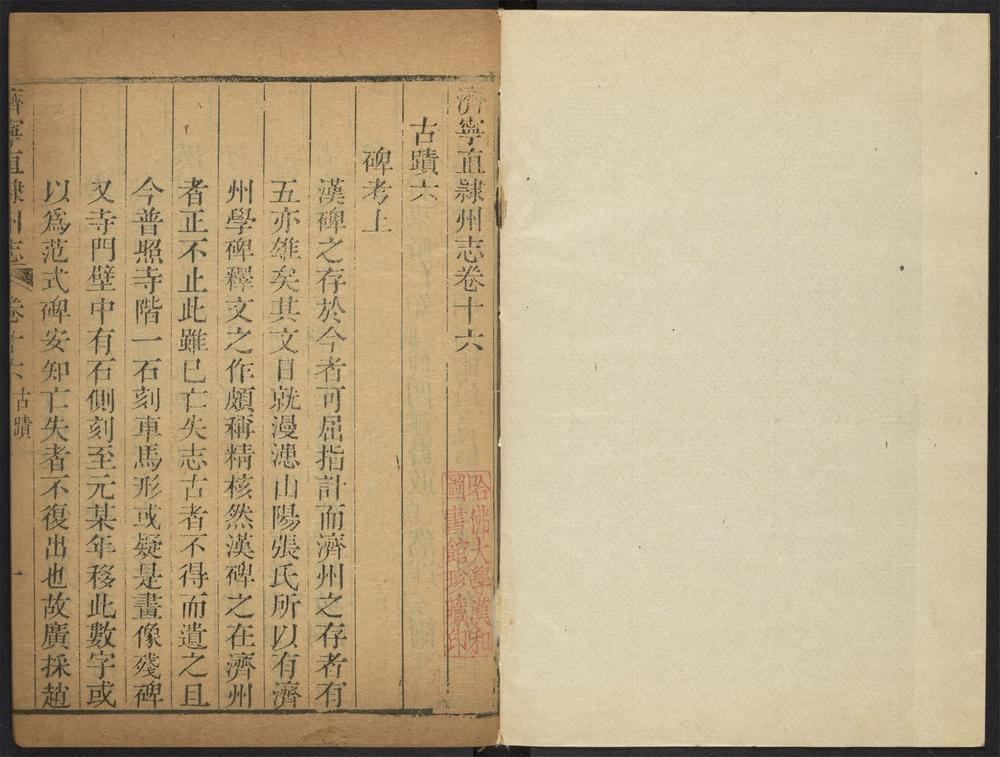 濟寧直隸州志卷十六
古蹟六
碑考上
漢碑之存於今者可屈指計而濟州之存者有
五亦雄矣其文日就漫漶山陽張氏所以有濟
州學碑釋文之作頗稱精核然漢碑之在濟州
者正不止此雖已亡失志古者不得而遺之且
今普照寺階一石刻車馬形或疑是畫像殘碑
又寺門壁中有石側刻至元某年移此數字或
以爲范式碑安知亡失者不復出也故廣採趙
濟寧直隸州志
卷十六
古蹟
一
哈佛大學漢和
圖書館珍藏印